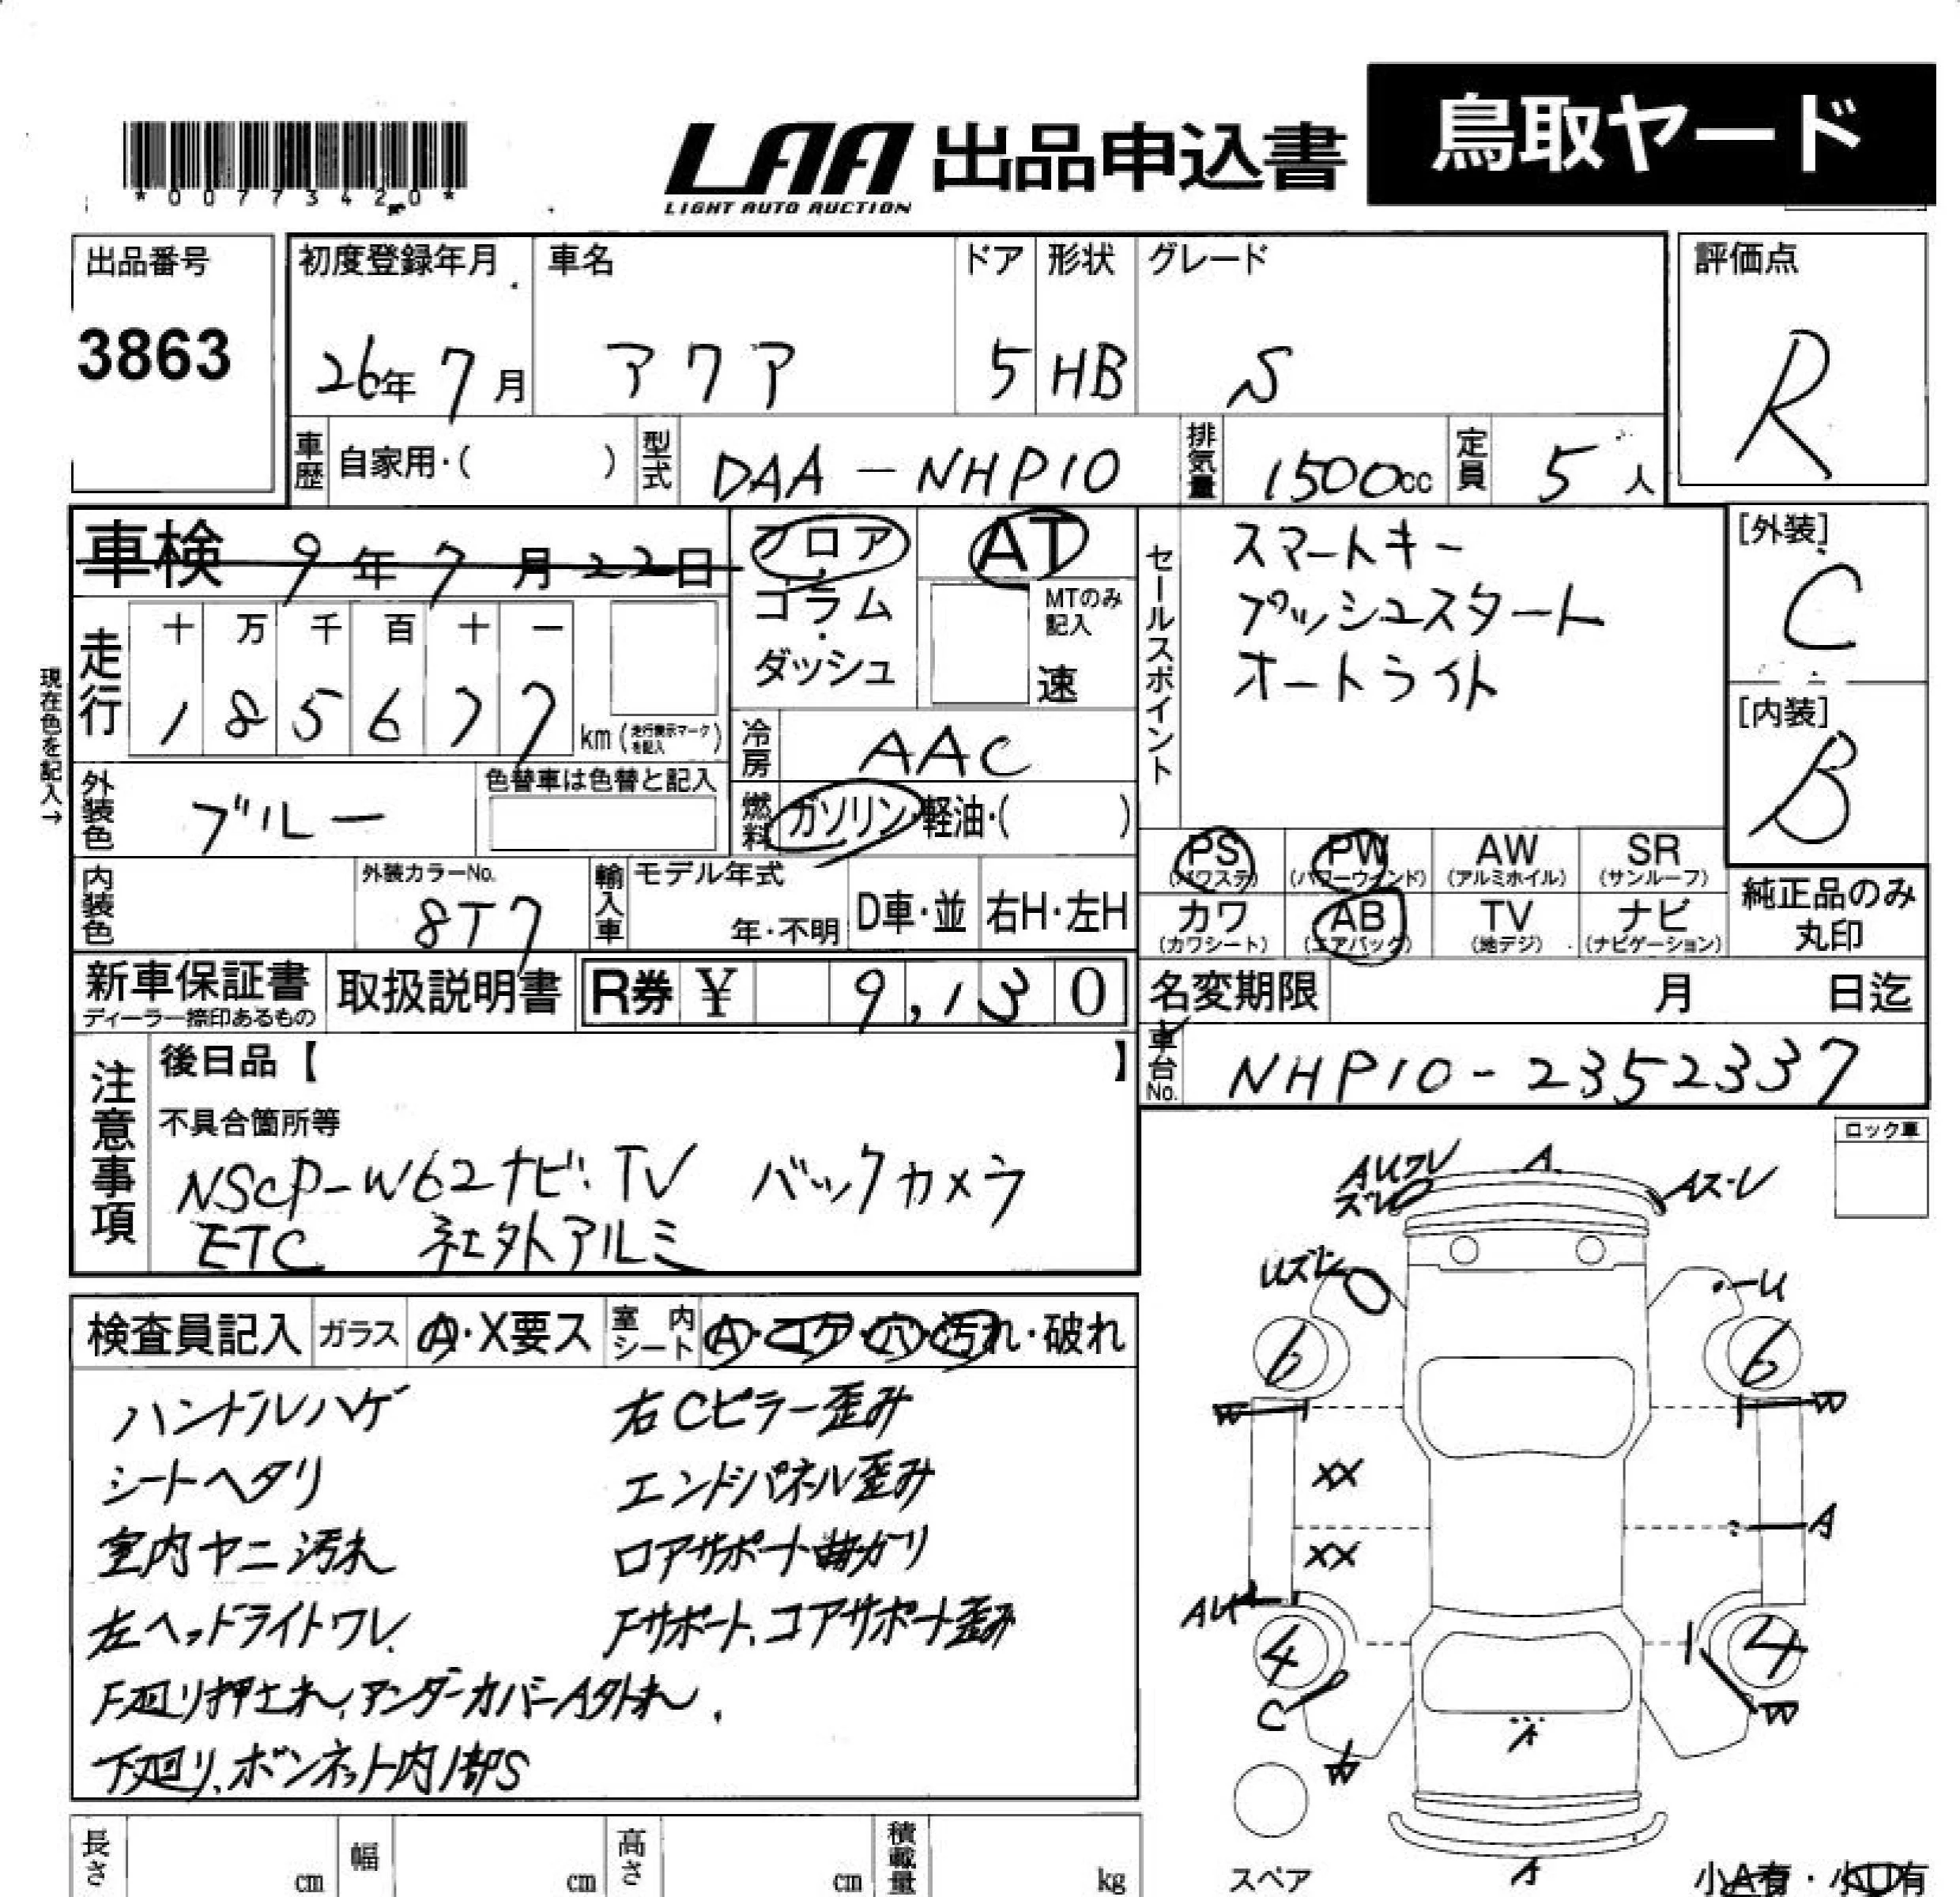 *00773420*
LAA 出品申込書 鳥取ヤード
LIGHT AUTO AUCTION
出品番号 初度登録年月 車名 ドア 形状 グレード 評価点
3863 26年 7月 アクア 5 HB S R
車歴 自家用・( ) 型式 DAA-NHP10 排気量 1500cc 定員 5人
車検 9年 7月 22日 フロア・コラム・ダッシュ AT
MTのみ記入 速
セールスポイント
スマートキー
プッシュスタート
オートライト
[外装] C
[内装] B
現在色を記入→
走行 十 万 千 百 十 一
1 8 5 6 7 7 km (走行表示マークを記入)
冷房 AAC
外装色 ブルー 色替車は色替と記入
燃料 ガソリン・軽油・( )
PS (パワステ) PW (パワーウインド) AW (アルミホイル) SR (サンルーフ)
カワ (カワシート) AB (エアバッグ) TV (地デジ) ナビ (ナビゲーション)
純正品のみ丸印
内装色 外装カラーNo. 8T7 輸入車 モデル年式 年・不明 D車・並 右H・左H
新車保証書 ディーラー捺印あるもの 取扱説明書 R券 ¥ 9,130
名変期限 月 日迄
車台No. NHP10-2352337
注意事項
後日品【 】
不具合箇所等
NSCP-W62ナビ.TV バックカメラ
ETC 社外アルミ
ロック車
検査員記入 ガラス A・X要ス 室内シート A・コゲ・穴・汚れ・破れ
ハンドルハゲ 右Cピラー歪み
シートヘタリ エンドパネル歪み
室内ヤニ汚れ ロアサポート曲がり
左ヘッドライトワレ Fサポート、コアサポート歪み
F廻り押され、アンダーカバーA外れ
下廻り、ボンネット内部S
A
AUワレ
ズレ
Aズレ
Uズレ
U
6 6
W W
XX
A
XX
AU
4 4
C W
A
W
スペア
A
小A有・小U有
長さ cm 幅 cm 高さ cm 積載量 kg